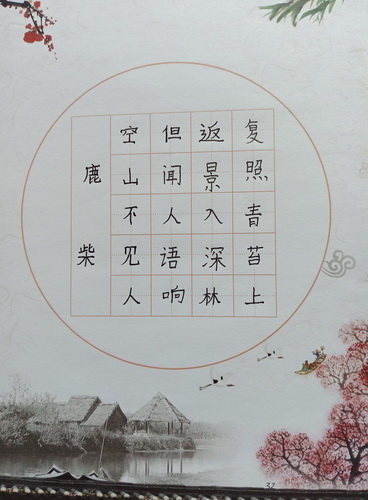 鹿柴
空山不见人
但闻人语响
返景入深林
复照青苔上
32